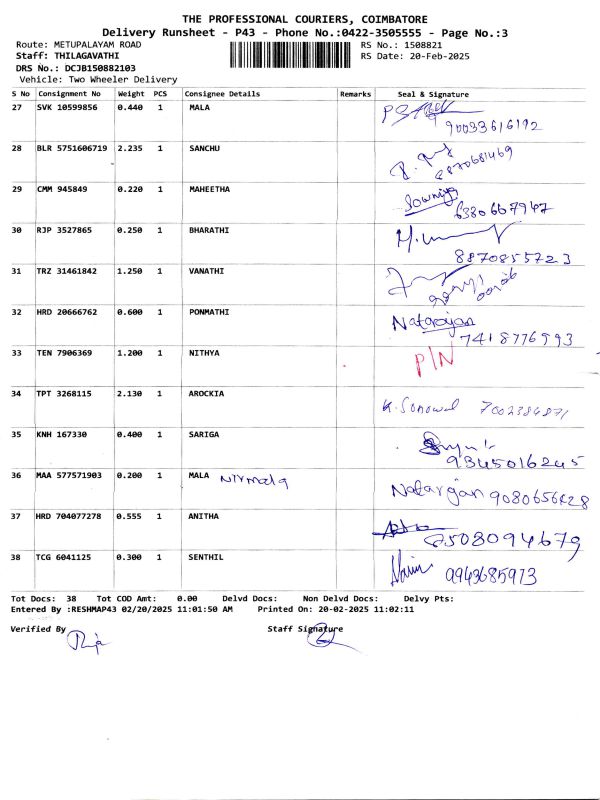 THE PROFESSIONAL COURIERS, COIMBATORE
Delivery Runsheet - P43 - Phone No.:0422-3505555 - Page No.:3
Route: METUPALAYAM ROAD RS No.: 1508821
Staff: THILAGAVATHI RS Date: 20-Feb-2025
DRS No.: DCJB150882103
Vehicle: Two Wheeler Delivery
S No Consignment No Weight PCS Consignee Details Remarks Seal & Signature
27 SVK 10599856 0.440 1 MALA 90033616192
28 BLR 5751606719 2.235 1 SANCHU
29 CMM 945849 0.220 1 MAHEETHA Sowmiya 6380667947
30 RJP 3527865 0.250 1 BHARATHI 8870855723
31 TRZ 31461842 1.250 1 VANATHI
32 HRD 20666762 0.600 1 PONMATHI Natarajan 7418776993
33 TEN 7906369 1.200 1 NITHYA P/N
34 TPT 3268115 2.130 1 AROCKIA K. Sonowal 7002384871
35 KNH 167330 0.400 1 SARIGA 9345016245
36 MAA 577571903 0.200 1 MALA Nirmala Natarajan 9080656428
37 HRD 704077278 0.555 1 ANITHA 8508094679
38 TCG 6041125 0.300 1 SENTHIL 9943685973
Tot Docs: 38 Tot COD Amt: 0.00 Delvd Docs: Non Delvd Docs: Delvy Pts:
Entered By :RESHMAP43 02/20/2025 11:01:50 AM Printed On: 20-02-2025 11:02:11
Verified By Staff Signature